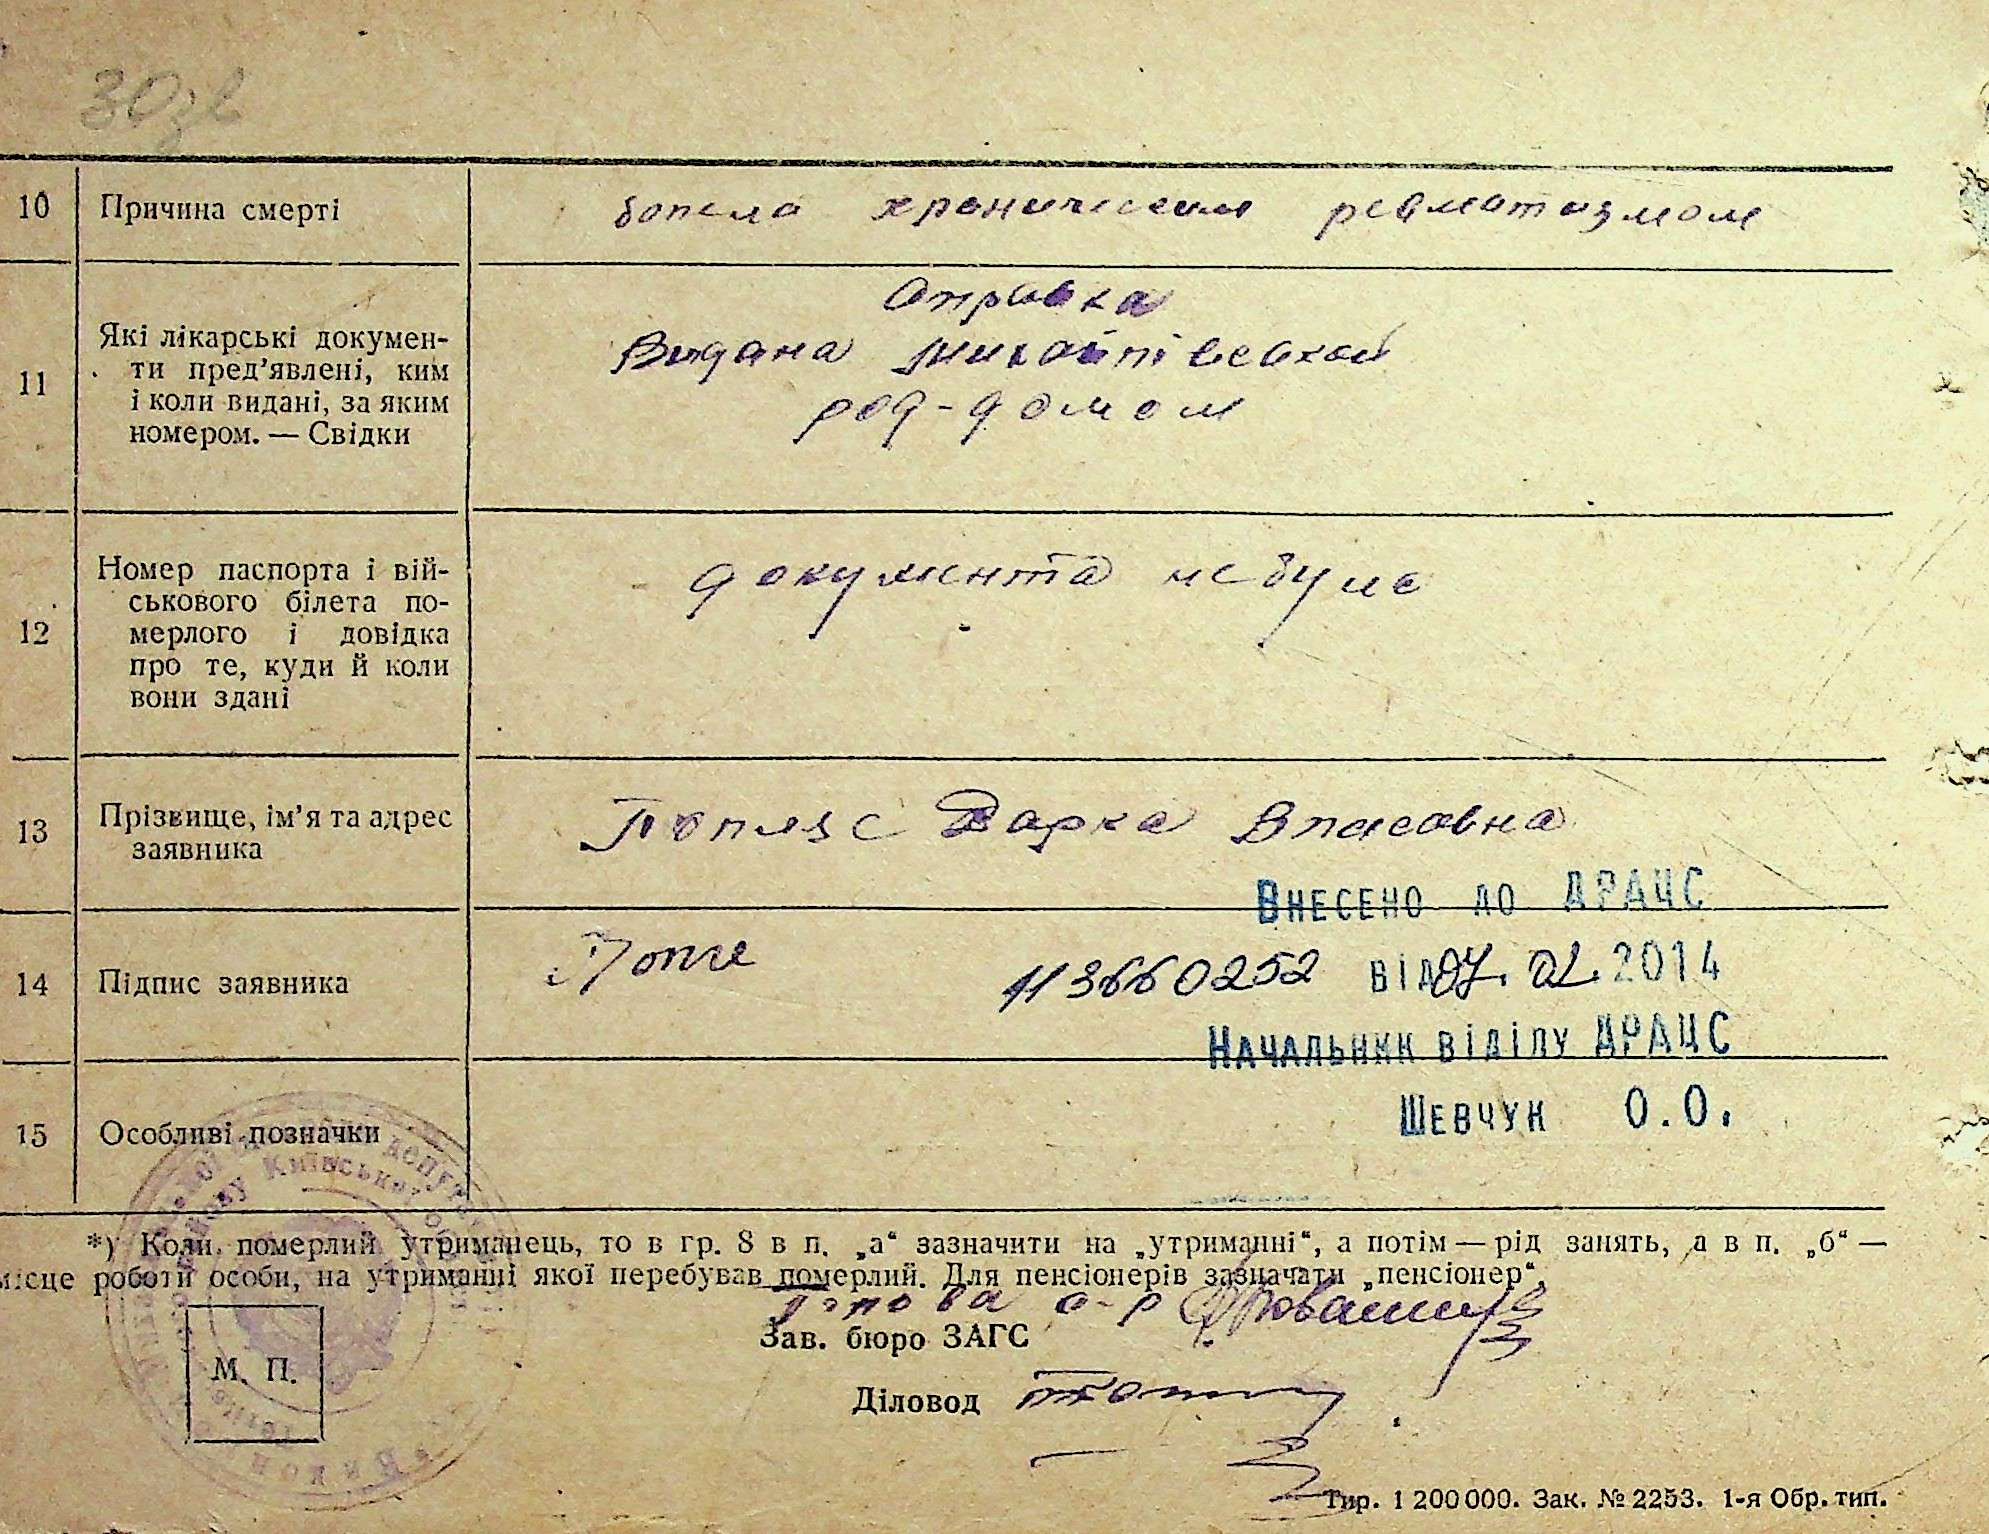 10 Причина смерті болела хроническим ревматизмом
Справка
Видана Михайлівской
род-домом
11 Які лікарські докумен-
ти пред’явлені, ким
і коли видані, за яким
номером. — Свідки
документа не було
12 Номер паспорта і вій-
ськового білета по-
мерлого і довідка
про те, куди й коли
вони здані
13 Прізвище, ім’я та адрес
заявника
Варка Власовна
Внесено до ДРАЦС
14 Підпис заявника
113660252 від 07.02.2014
Начальник відділу ДРАЦС
Шевчук О.О.
15 Особливі позначки
*) Коли померлий утриманець, то в гр. 8 в п. „а“ зазначити на „утриманні“, а потім — рід занять, а в п. „б“ —
місце роботи особи, на утриманні якої перебував померлий. Для пенсіонерів зазначати „пенсіонер“.
Голова с-р
Зав. бюро ЗАГС
М. П.
Діловод
Тир. 1 200 000. Зак. № 2253. 1-я Обр. тип.